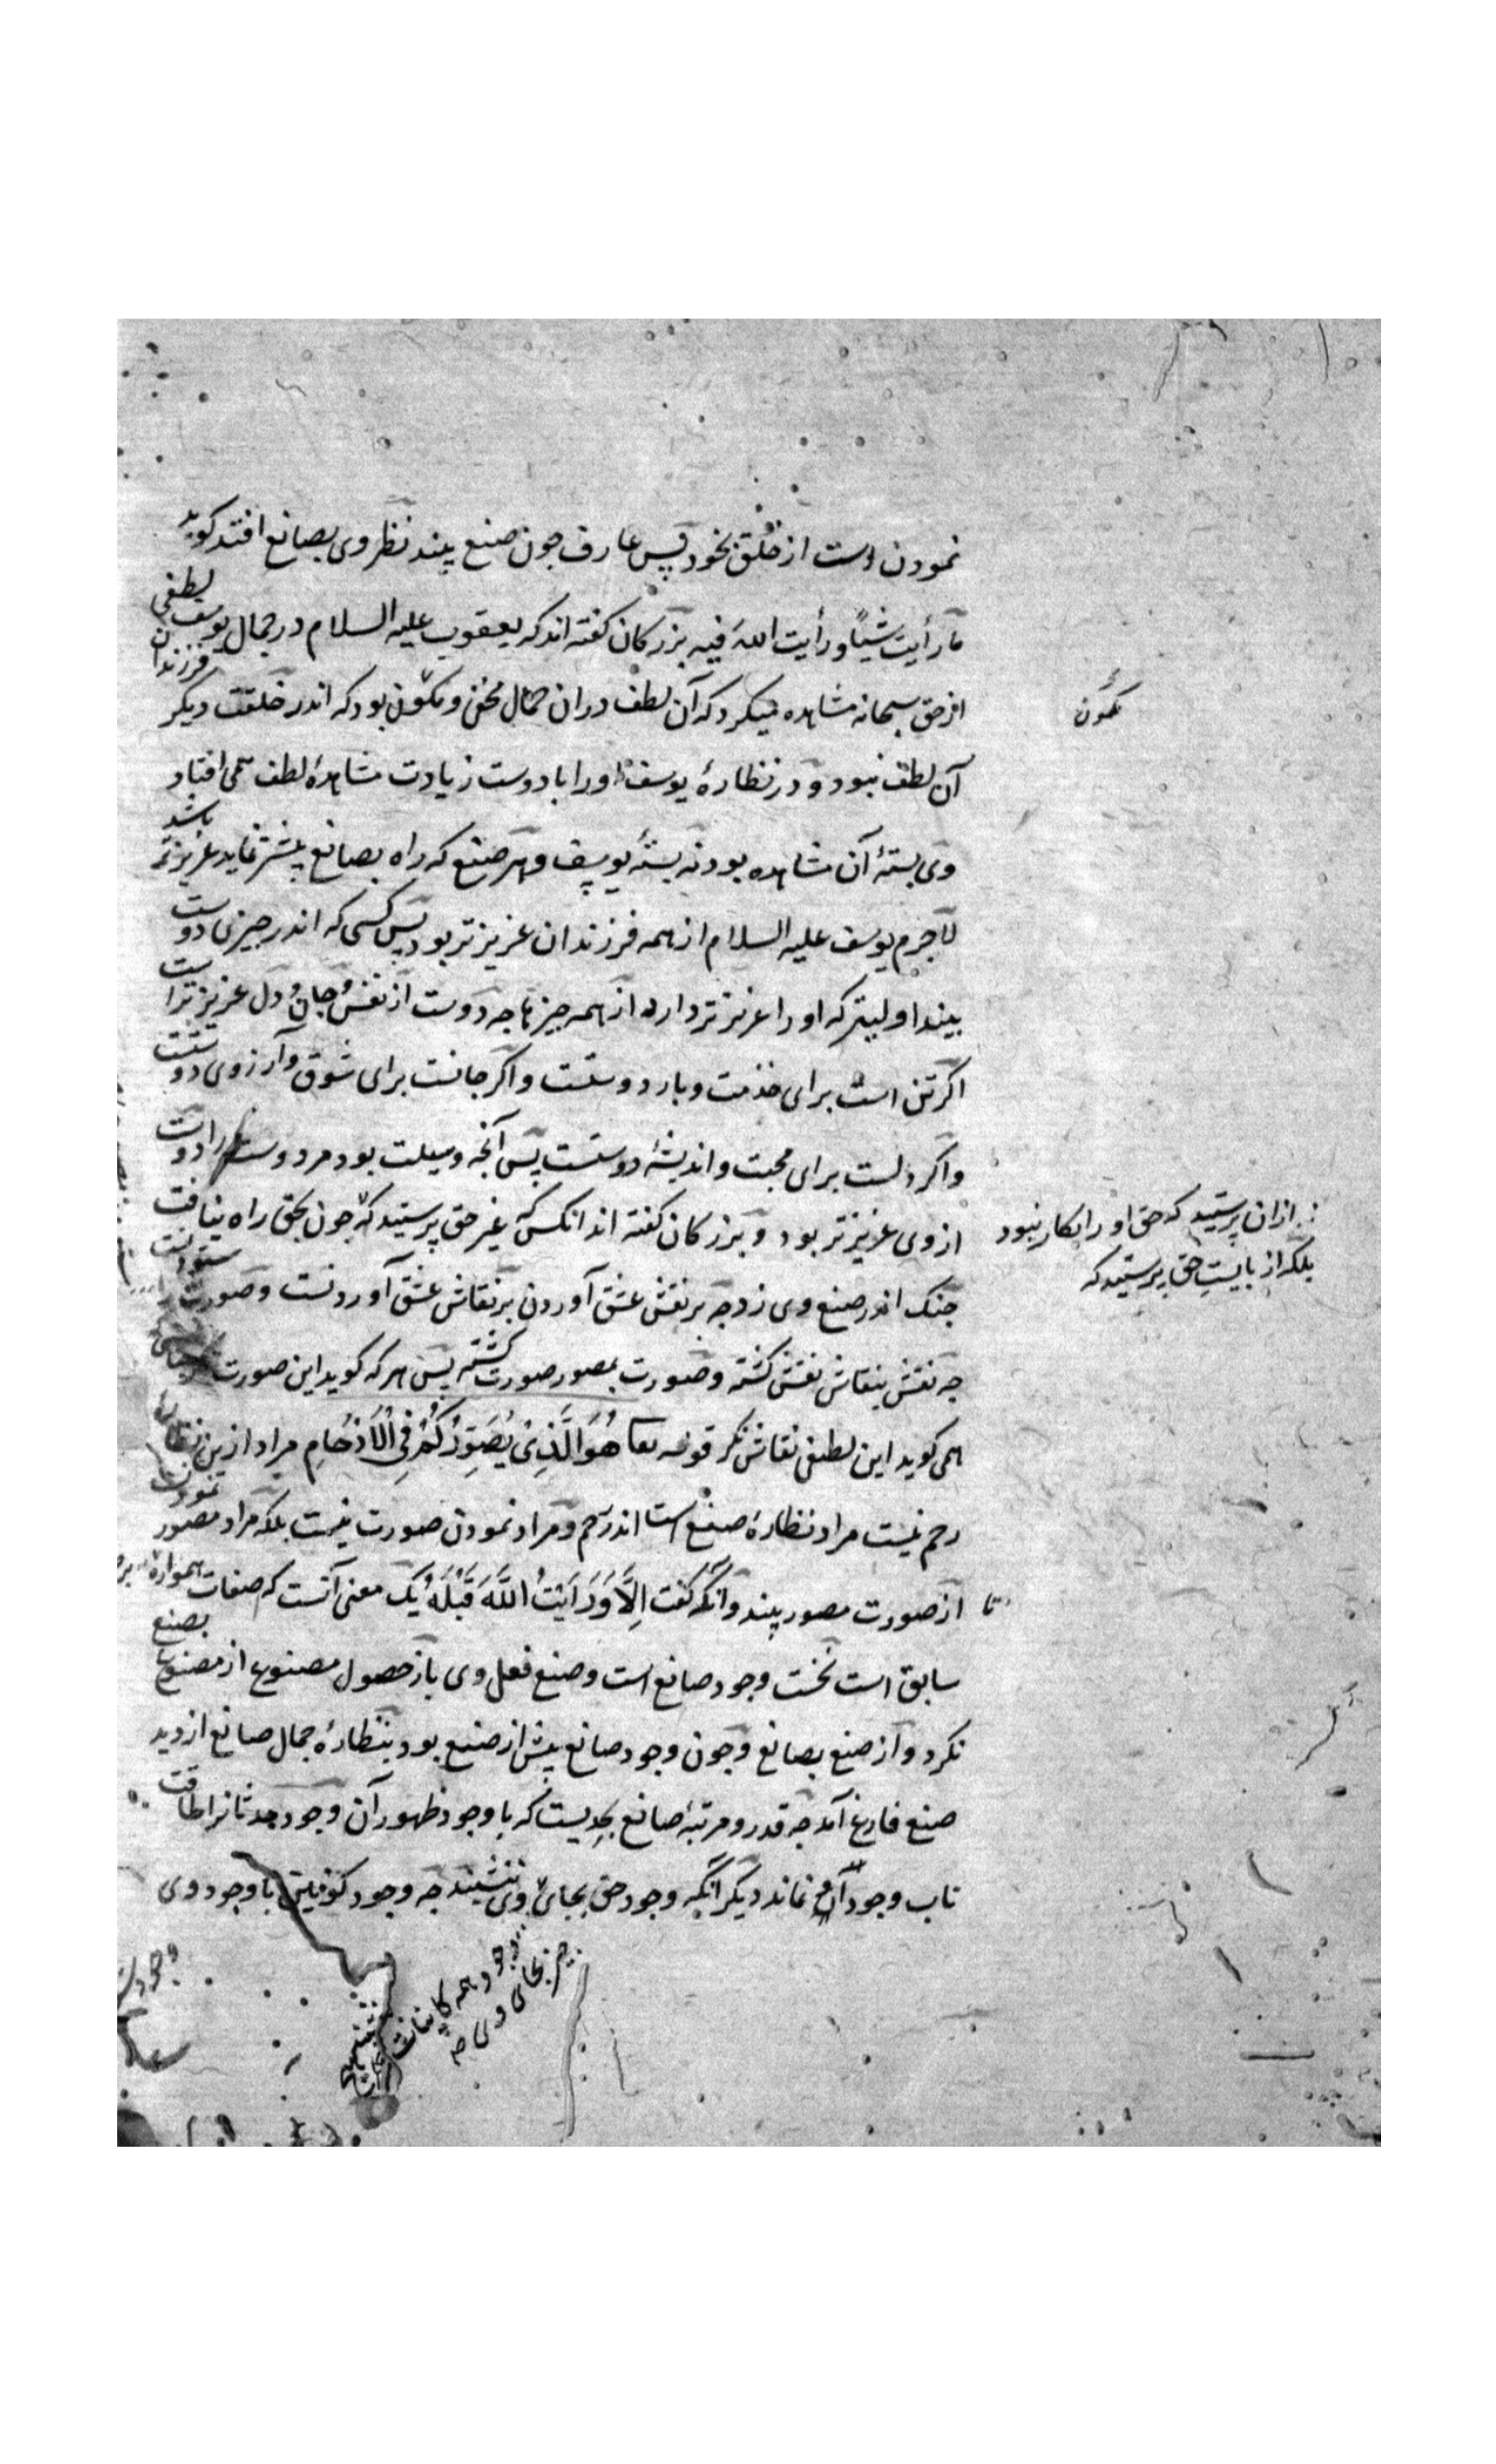 نمودن است از خلق بخود پس عارف جون صنع بیند نظر وی بصانع افتد کوید
ما رأیت شیئاً و رأیت الله فیه بزرکان کفته اند که یعقوب علیه السلام در جمال یوسف لطفی
از حق سبحانه مشاهده میکرد که آن لطف در ان جمال مخفی و مکون بود که اندر خلقت دیکر فرزندان
مکون
آن لطف نبود و در نظارهٔ یوسف اورا با دوست زیادت مشاهدهٔ لطف می افتاد
وی بستهٔ آن مشاهده بود نه بستهٔ یوسف و هر صنع که راه بصانع بیشتر نماید عزیزتر باشد
لاجرم یوسف علیه السلام از همه فرزندان عزیزتر بود پس کسی که اندر جیزی دوست
بیند اولیتر که اورا عزیزتر دارد از همه جیزها جه دوست از نفس و جان و دل عزیزتر است
اکر تن است برای خدمت و بار دوستست و اکر جانست برای شوق و آرزوی دوستست
و اکر دلست برای محبت و اندیشهٔ دوستست پس آنجه وسیلت بود مر دوست را دوست
از وی عزیزتر بود و بزرکان کفته اند انکس که غیر حق پرستید که جون بحق راه نیافت
از ان پرستید که حق اورا بکار نبود
بلکه از بایست حق پرستید که
جنک اندر صنع وی زد جه بر نقش عشق آوردن بر نقاش عشق آوردنست و صورت ستودن
جه نقش بنقاش نقش کشته و صورت بمصور صورت کشته پس هر که کوید این صورت
همی کوید این لطیف نقاش نکر قوله تعا هُوَ الَّذِی یُصَوِّرُکُمْ فِی الْاَرْحَامِ مراد ازین
رحم نیست مراد نظارهٔ صنع است اندر رحم و مراد نمودن صورت نیست بلکه مراد مصور نمودن
تا از صورت مصور بیند و آنکه کفت اِلَّا وَرَاَیْتُ اللَّهَ قَبْلَهُ یک معنی آنست که صفات همواره
سابق است نخست وجود صانع است و صنع فعل وی باز حصول مصنوع از مصنوع بصنع
نکرد و از صنع بصانع و جون وجود صانع بیش از صنع بود بنظارهٔ جمال صانع از دید
صنع فارغ آمد جه قدر و مرتبهٔ صانع بحدیست که با وجود ظهور آن وجود محدثانرا طاقت
تاب وجود آن نماند دیکر آنکه وجود حق بجای وی ننشیند جه وجود کونین با وجود وی
وجود همه کاینات
جیز بجای وی